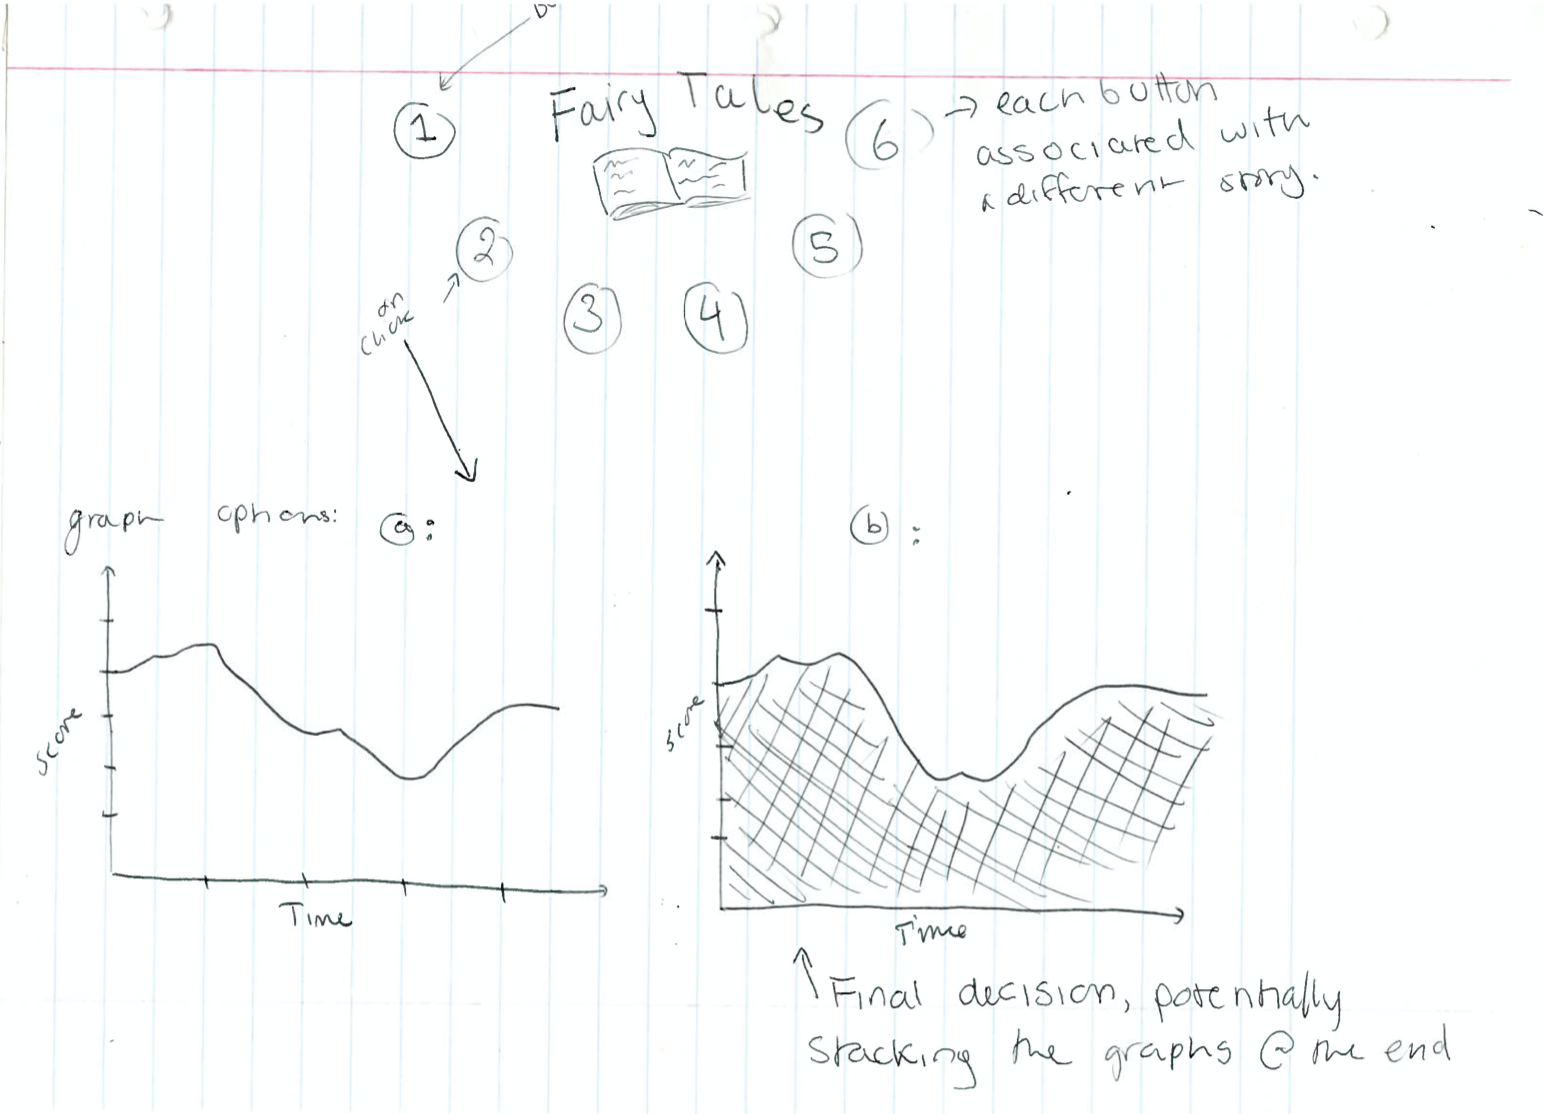 Fairy Tales
1
6
→ each button
associated with
a different story.
2
5
3
4
on
click
graph options: a:
b:
Score
Time
Score
Time
Final decision, potentially
stacking the graphs @ the end